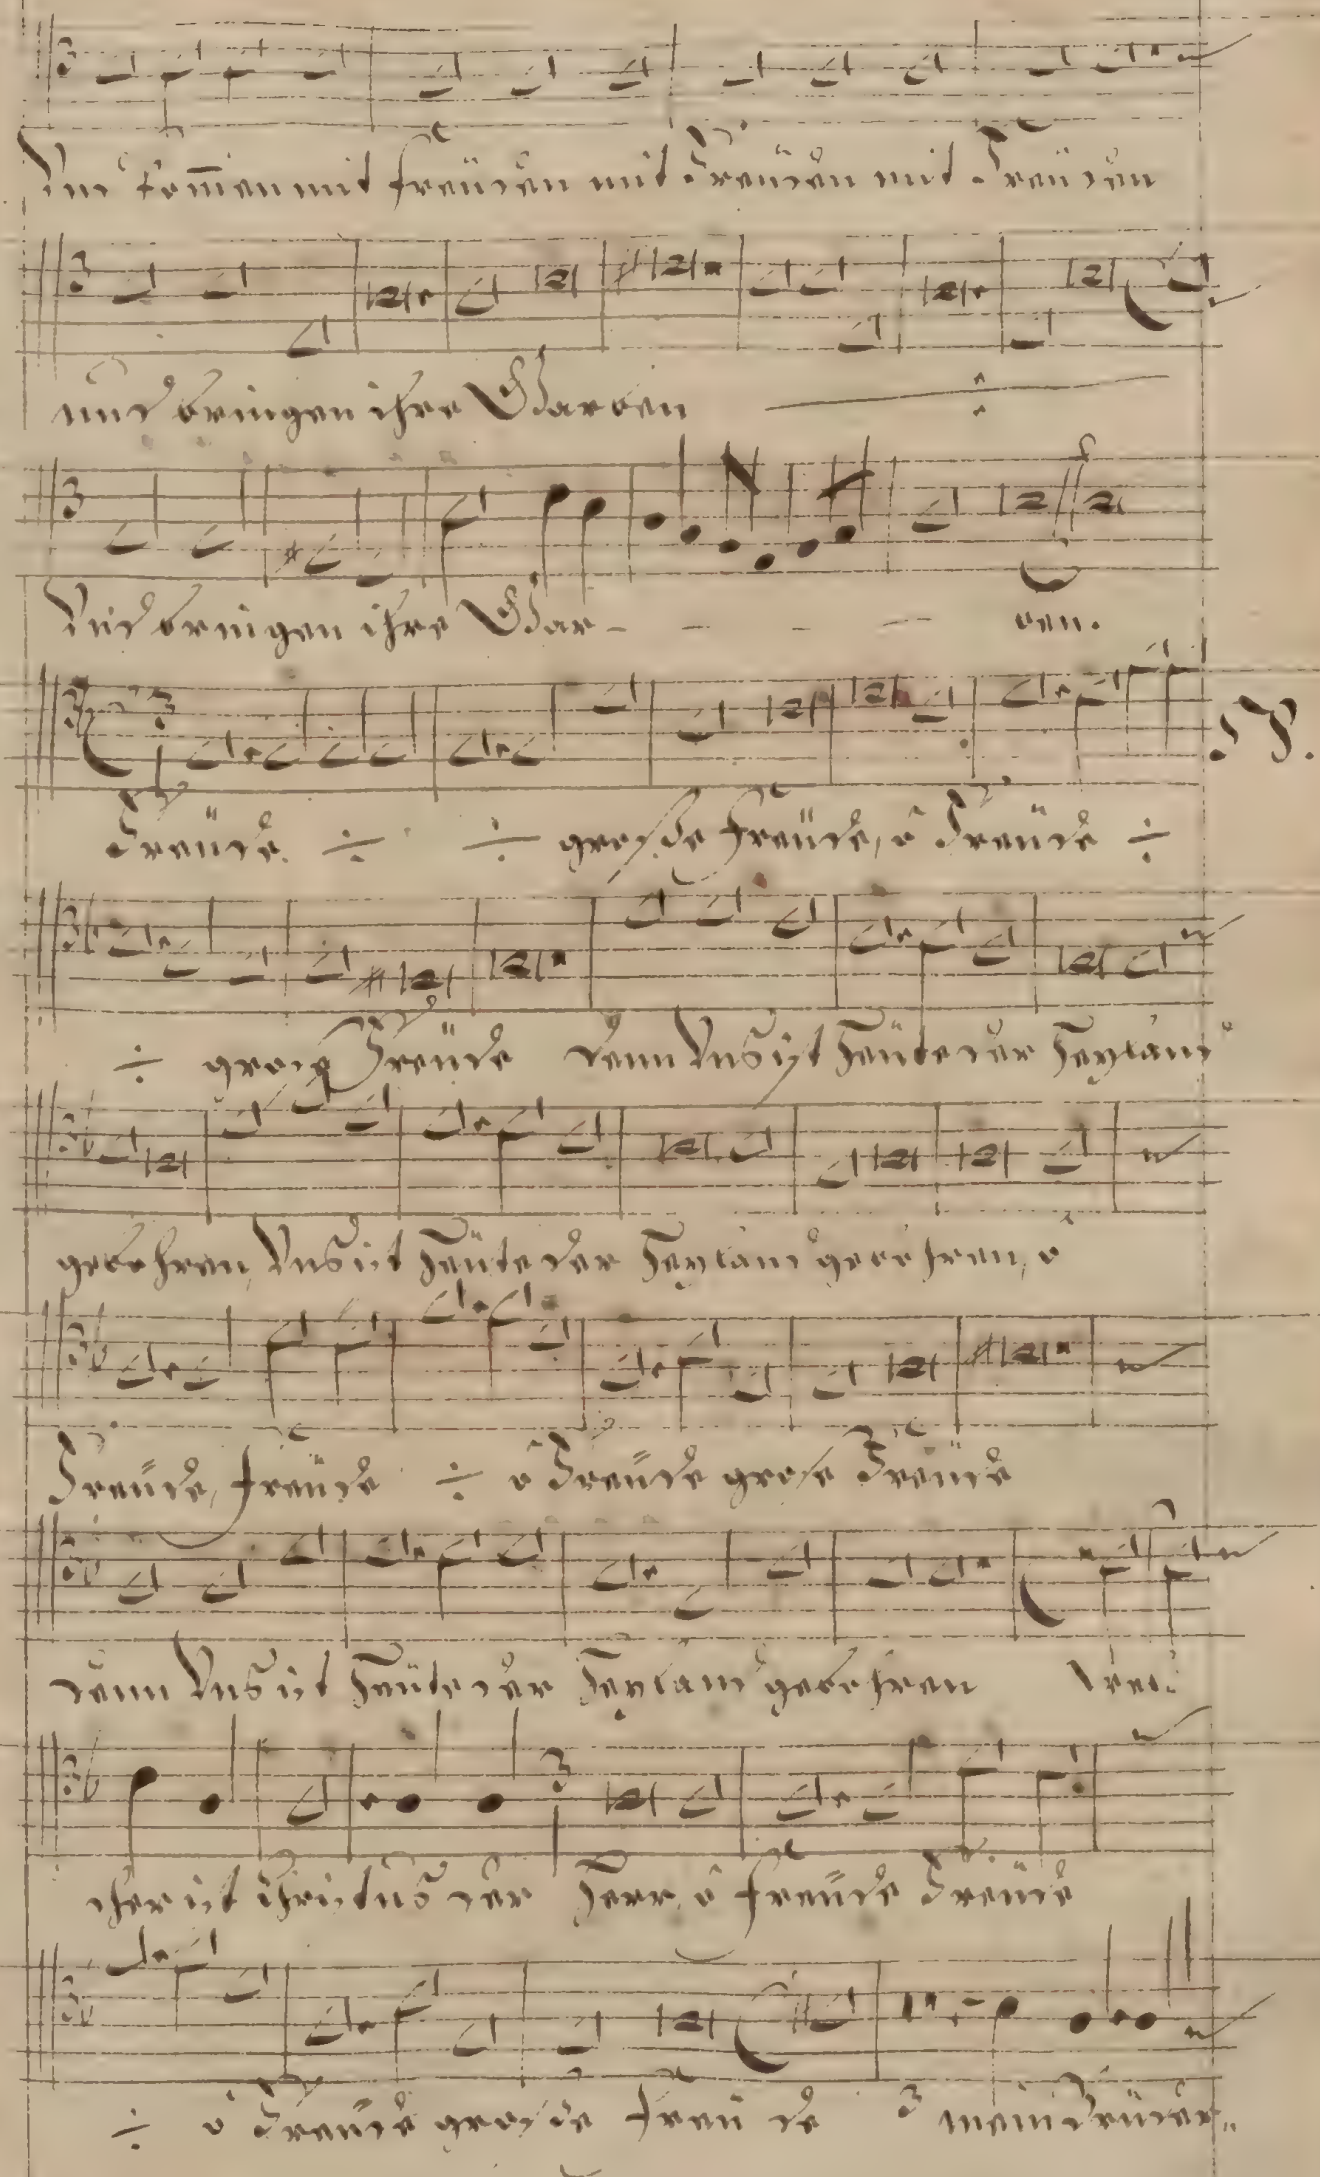 Und kom̄en mit freüden mit Freüden mit Freüden
und bringen ihre Garben
Und bringen ihre Gar - - - - ben.
Freüde. ÷ ÷ große freüde, ô Freüde ÷
÷ groß Freüde denn Uns ist heüte der Heyland
gebohren, Uns ist heüte der Heyland gebohren, ô
Freüde, freüde ÷ ô Freüde große Freüde
denn Uns ist heüte der Heyland gebohren
cher ist Christus der Herr, ô freüde Freüde
÷ ô Freüde große freü de mein Brüder